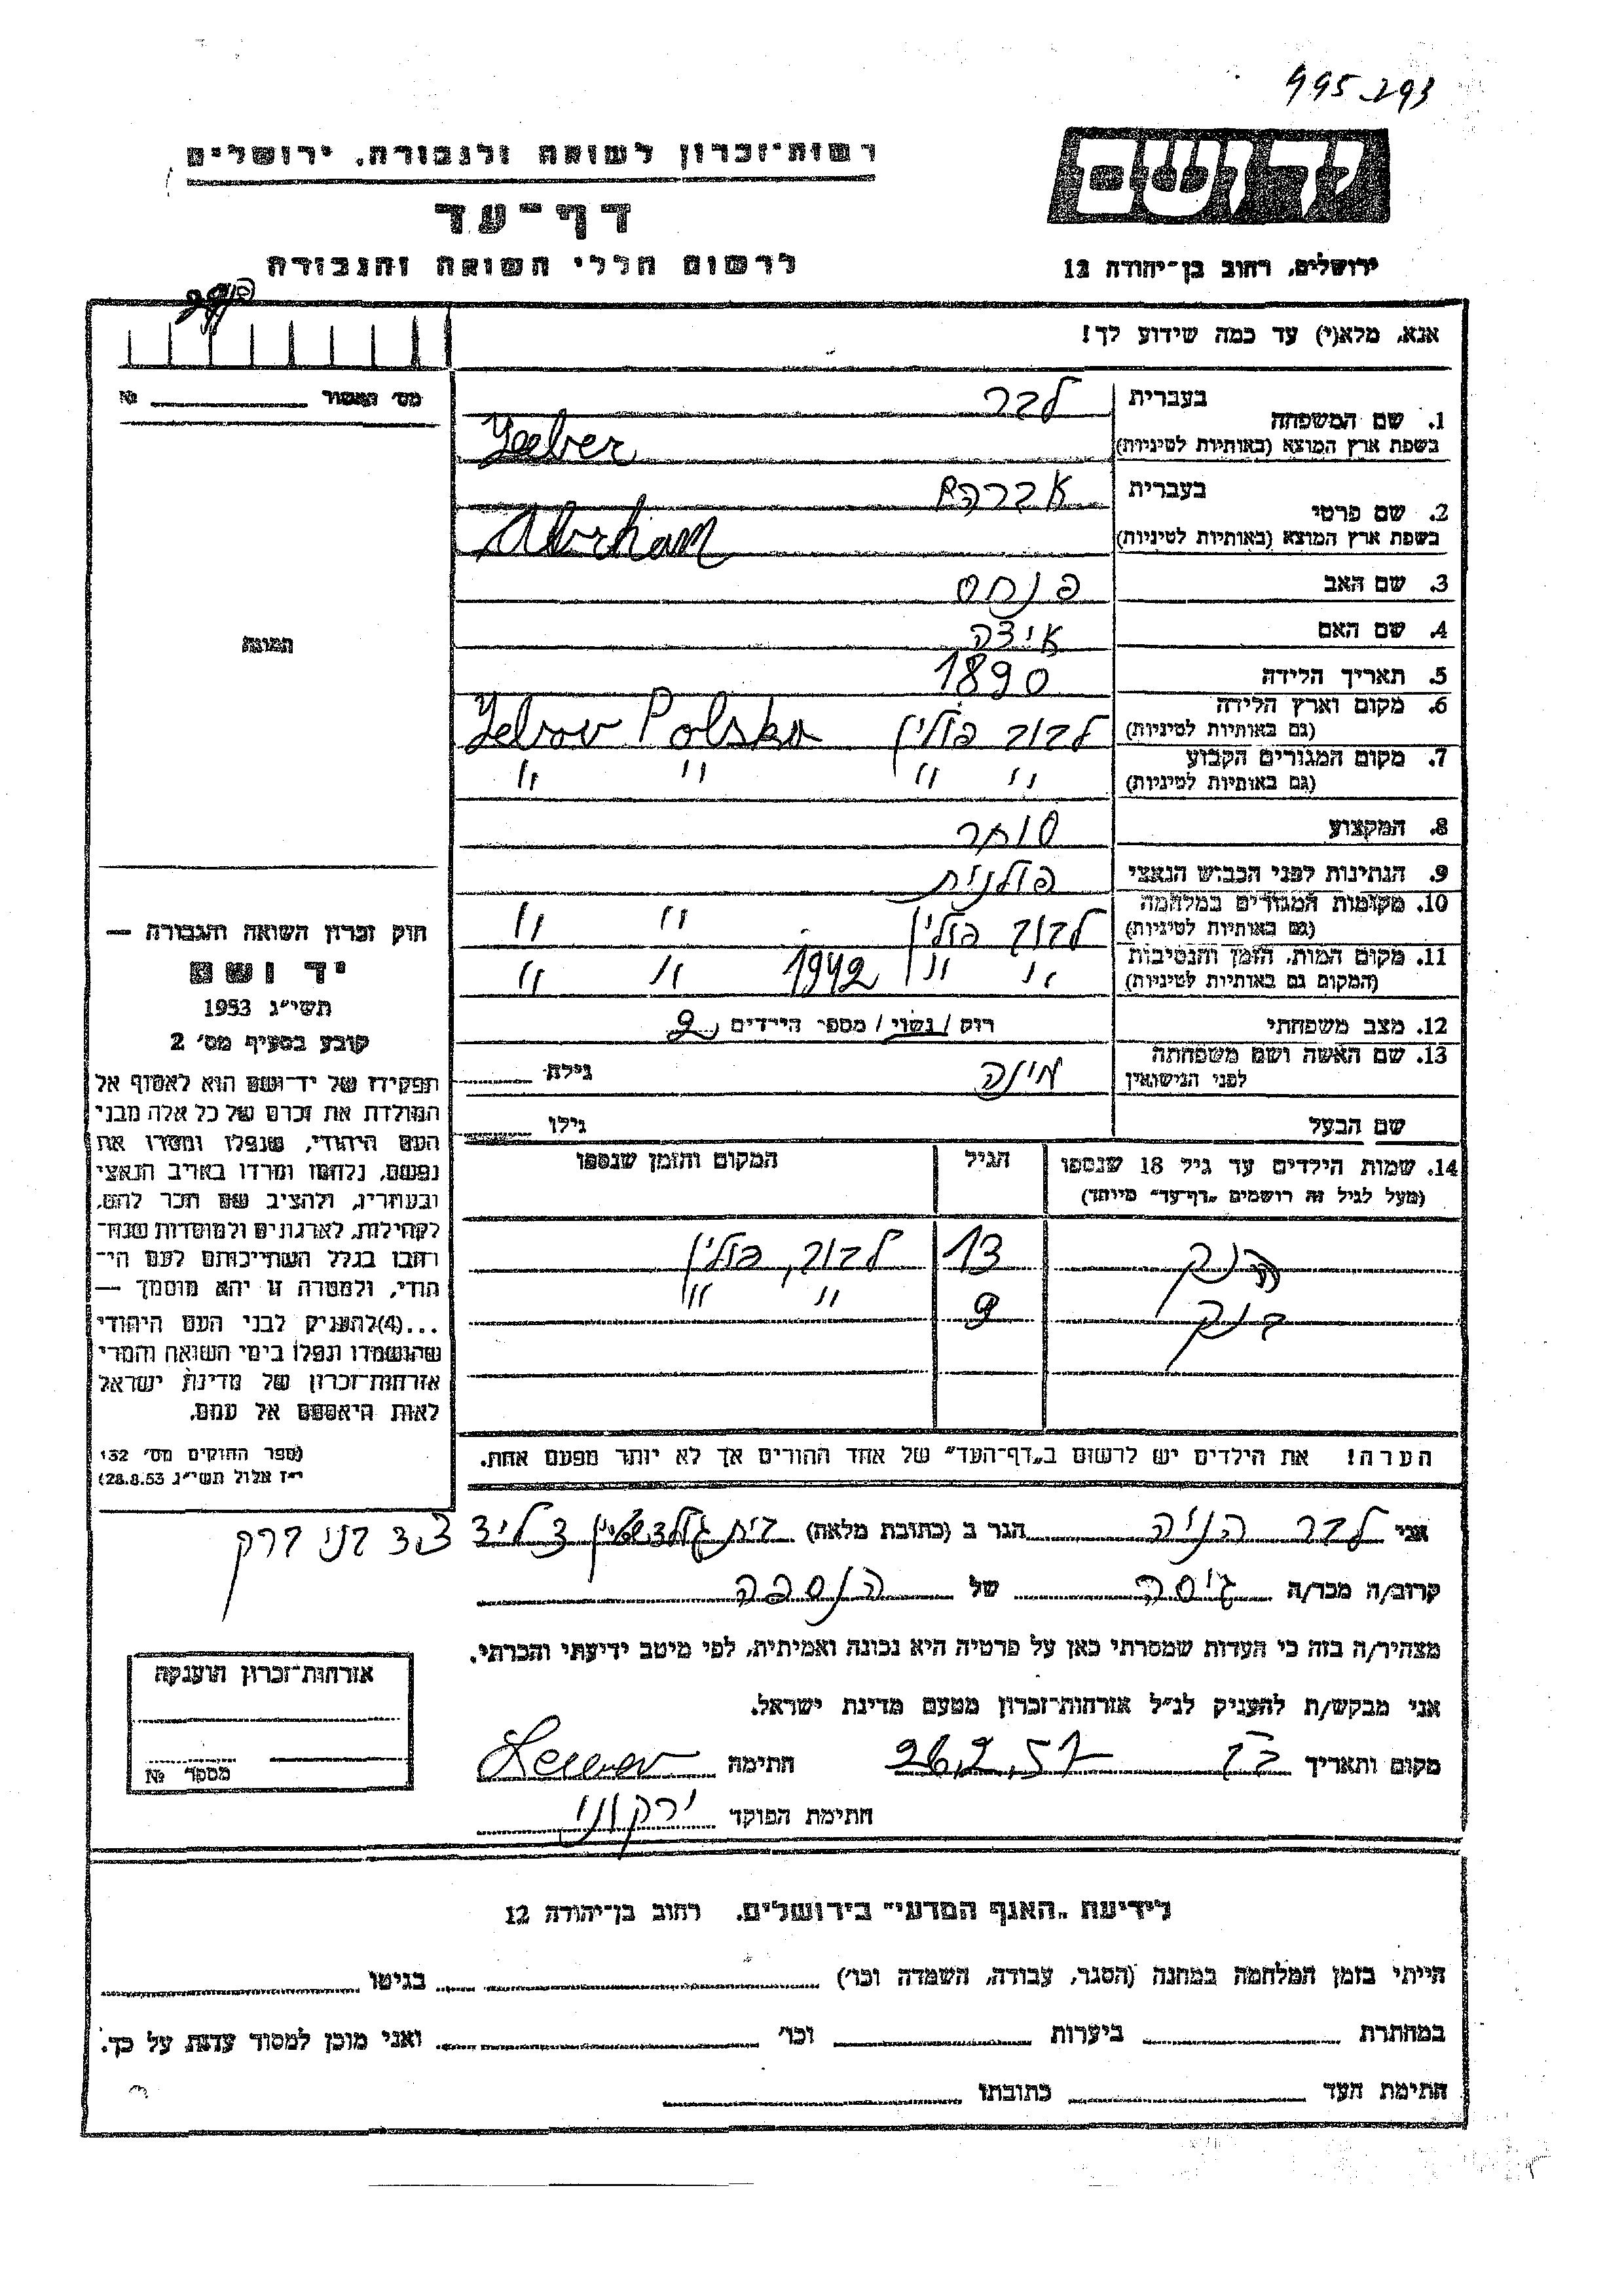 995-293
רשות-זכרון לשואה ולגבורה, ירושלים
יד ושם
דף-עד
לרשום חללי השואה והגבורה
ירושלים, רחוב בן-יהודה 12
אנא, מלא(י) עד כמה שידוע לך!
מס' האשור № 
1. שם המשפחה בעברית לבר
בשפת ארץ המוצא (באותיות לטיניות) Leber
2. שם פרטי בעברית אברהם
בשפת ארץ המוצא (באותיות לטיניות) Abrham
3. שם האב פנחס
4. שם האם איצה
5. תאריך הלידה 1890
6. מקום וארץ הלידה לבוב פולין Lebov Polska
(גם באותיות לטיניות)
7. מקום המגורים הקבוע " " " "
(גם באותיות לטיניות)
8. המקצוע סוחר
9. הנתינות לפני הכבוש הנאצי פולנית
10. מקומות המגורים במלחמה לבוב פולין " "
(גם באותיות לטיניות)
11. מקום המות, הזמן והנסיבות " " 1942 " "
(המקום גם באותיות לטיניות)
12. מצב משפחתי רוק / נשוי / מספר הילדים 2
13. שם האשה ושם משפחתה מינה גילה
לפני הנישואין
שם הבעל גילו
14. שמות הילדים עד גיל 18 שנספו הגיל המקום והזמן שנספו
(מעל לגיל זה רושמים "דף-עד" מיוחד)
13 לבוב, פולין
9 " "
הערה! את הילדים יש לרשום ב"דף-העד" של אחד ההורים אך לא יותר מפעם אחת.
תמונה
חוק זכרון השואה והגבורה —
יד ושם
תשי"ג 1953
קובע בסעיף מס' 2
תפקידו של יד-ושם הוא לאסוף אל
המולדת את זכרם של כל אלה מבני
העם היהודי, שנפלו ומסרו את
נפשם, נלחמו ומרדו באויב הנאצי
ובעוזריו, ולהציב שם וזכר להם,
לקהילות, לארגונים ולמוסדות שנח-
רבו בגלל השתייכותם לעם הי-
הודי, ולמטרה זו יהא מוסמך —
...(4)להעניק לבני העם היהודי
שהושמדו ונפלו בימי השואה והמרי
אזרחות-זכרון של מדינת ישראל
לאות היאספם אל עמם.
(ספר החוקים מס' 132
י"ז אלול תשי"ג 28.8.53)
אני לבר הניה הגר ב (כתובת מלאה) בית גולדשטין ע"י בני ברק
קרוב/ה מכר/ה גיסה של הנספה
מצהיר/ה בזה כי העדות שמסרתי כאן על פרטיה היא נכונה ואמיתית, לפי מיטב ידיעתי והכרתי.
אני מבקש/ת להעניק לנ"ל אזרחות-זכרון מטעם מדינת ישראל.
מקום ותאריך 26.2.57 חתימה
חתימת הפוקד ירקוני
אזרחות-זכרון הוענקה
מספר №
לידיעת "האגף המדעי" בירושלים, רחוב בן-יהודה 12
הייתי בזמן המלחמה במחנה (הסגר, עבודה, השמדה וכו') בגיטו
במחתרת ביערות וכו' ואני מוכן למסור עדות על כך.
חתימת העד כתובתו